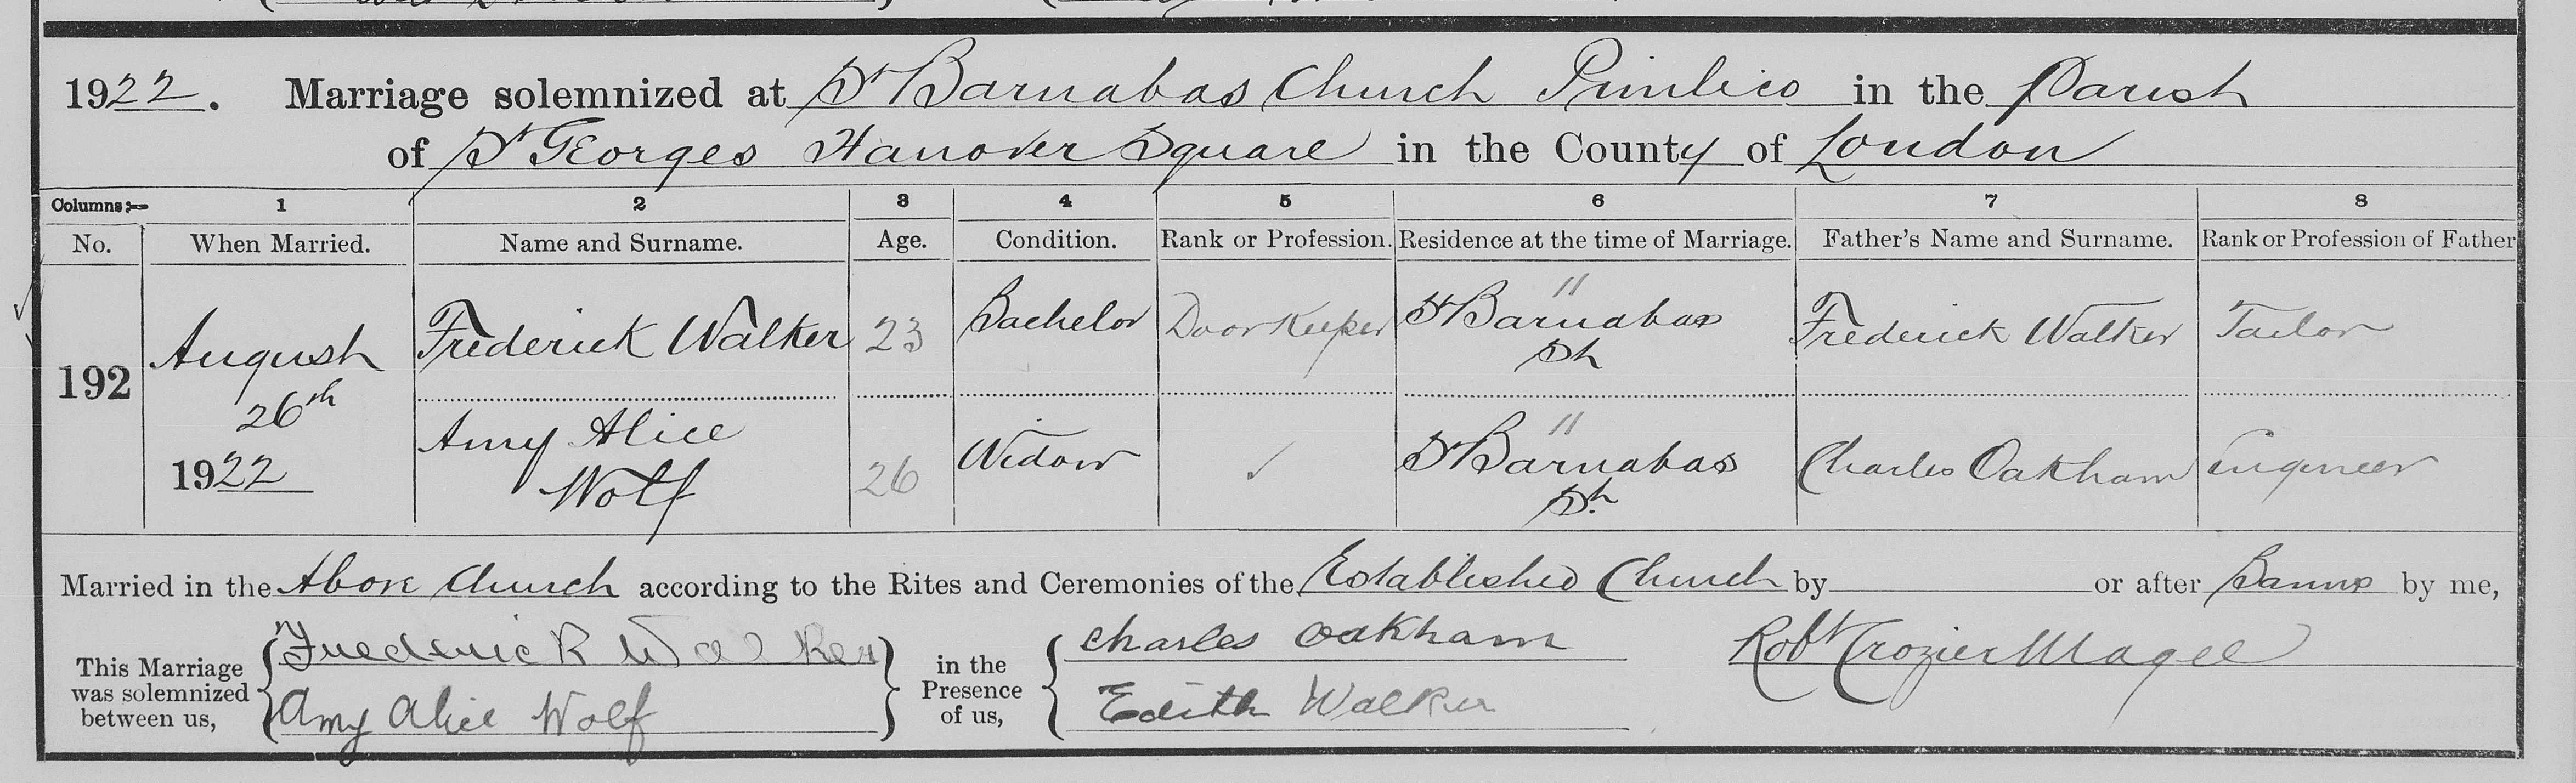 1922. Marriage solemnized at St Barnabas Church Pimlico in the Parish
of St Georges Hanover Square in the County of London
Columns:— 1 2 3 4 5 6 7 8
No. When Married. Name and Surname. Age. Condition. Rank or Profession. Residence at the time of Marriage. Father's Name and Surname. Rank or Profession of Father
192 August 26th 1922
Frederick Walker 23 Bachelor Door Keeper St Barnabas " Frederick Walker Tailor
Amy Alice Wolf 26 Widow ✓ St Barnabas " Charles Oakham Engineer
Married in the Above Church according to the Rites and Ceremonies of the Established Church by or after Banns by me,
This Marriage was solemnized between us, Frederick Walker
Amy Alice Wolf
in the Presence of us, Charles Oakham
Edith Walker
Robt Crozier Magee